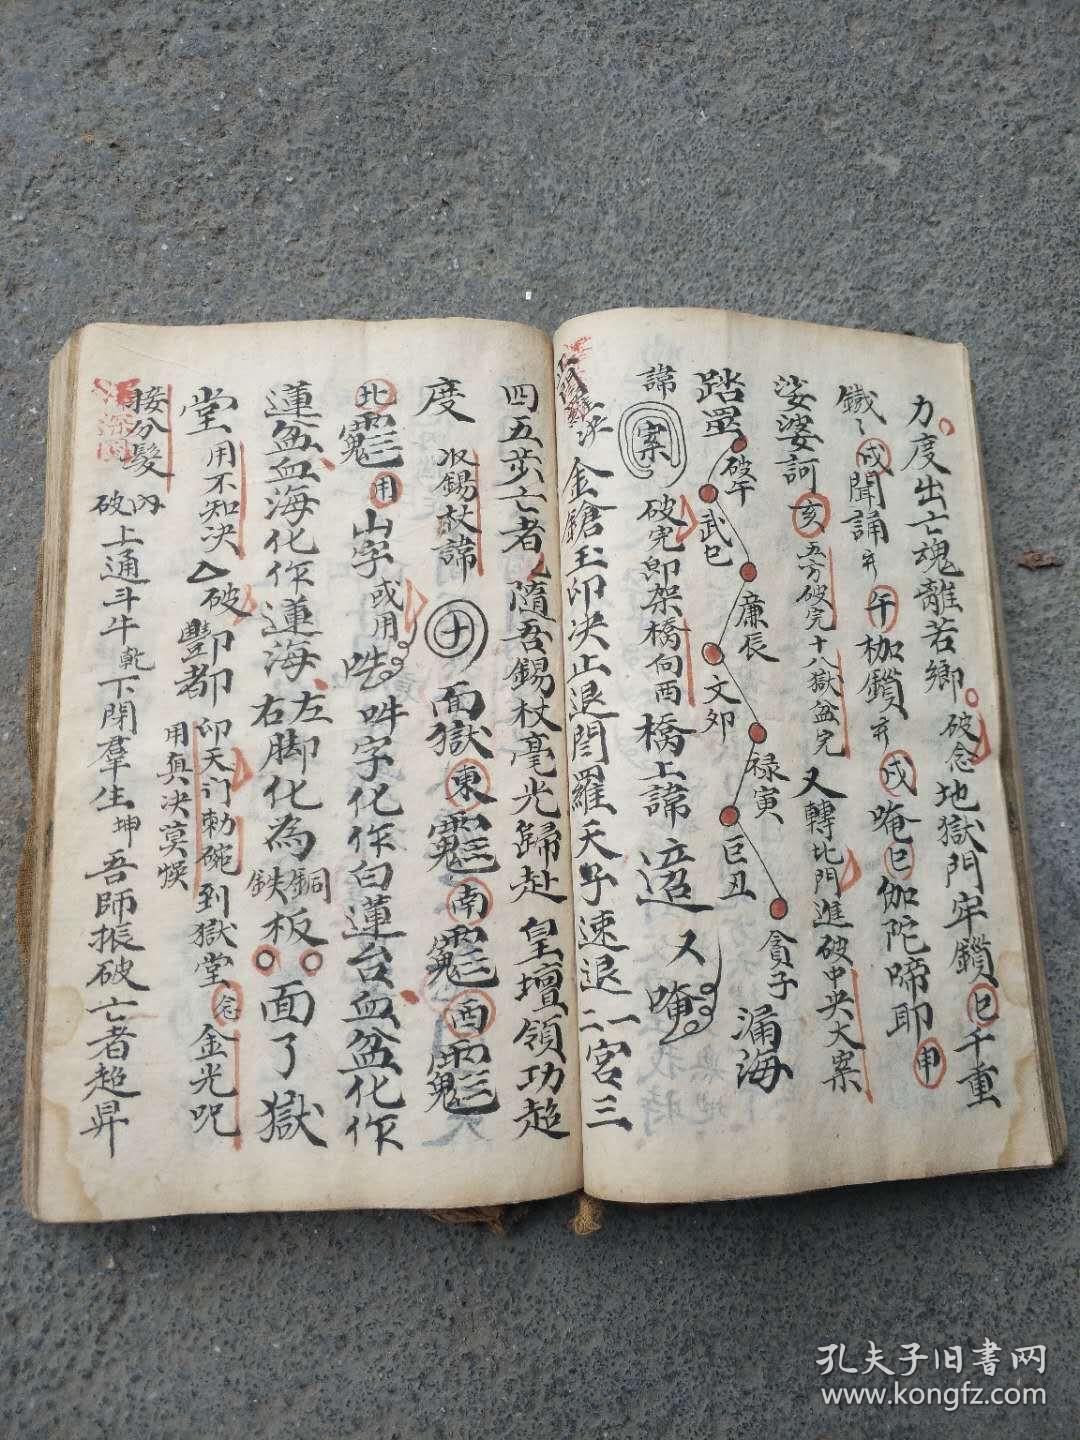 力度出亡魂離若鄉破念地獄門牢鎖巳千重
鐵戌聞誦午枷鎖戌唵巳伽陀啼耶申
娑婆訶亥五方破完十八獄盆完又轉北門進破中央大案
踏罡破午武巳廉辰文卯禄寅巨丑貪子漏海
諱案破完即架橋向西橋上諱又唵
決金鎗玉印決止退閆羅天子速退一二宮三
四五步亡者隨吾錫杖毫光歸赴皇壇領功超
度収錫杖諱十面獄東南西
北用山字或用吽字化作白蓮台血盆化作
蓮盆血海化作蓮海左右脚化為銅鉄板面了獄
堂用不知決破酆都卯卯天门勅碗到獄堂念金光呪
用真决莫悮
接分髮破上通斗牛乾下閉羣生坤吾師振破亡者超昇
孔夫子旧書网
www.kongfz.com